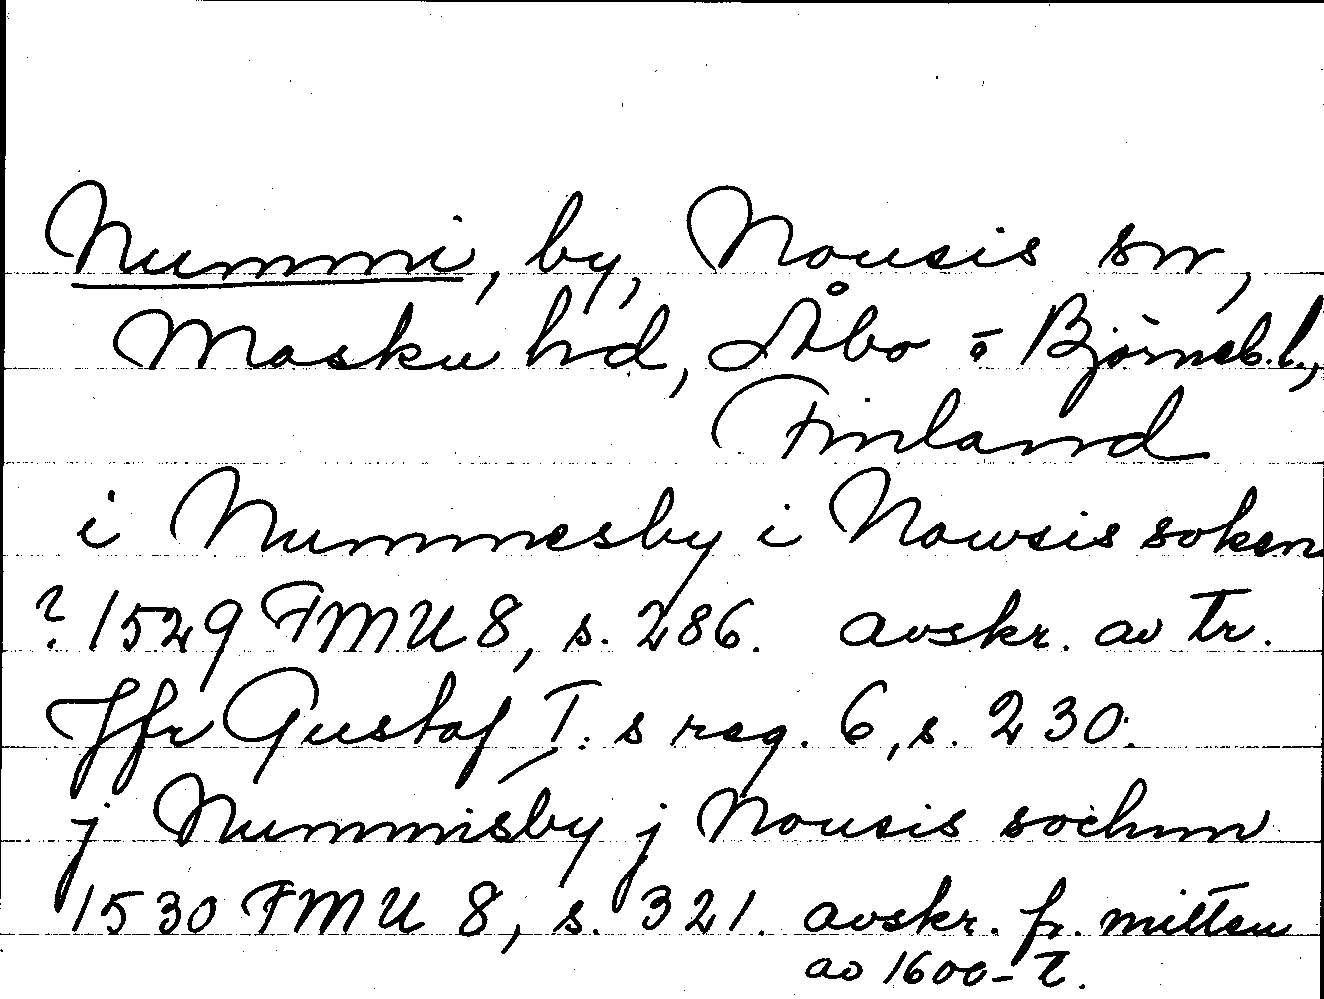 Nummi, by, Nousis sn,
Masku hd, Åbo o Björneb. l.,
Finland
i Nummesby i Nowsis soken
? 1529 FMU 8, s. 286. avskr. av tr.
Jfr Gustaf I. s reg. 6, s. 230.
j Nummisby j Nousis sochnn
1530 FMU 8, s. 321. avskr. fr. mitten
av 1600-t.